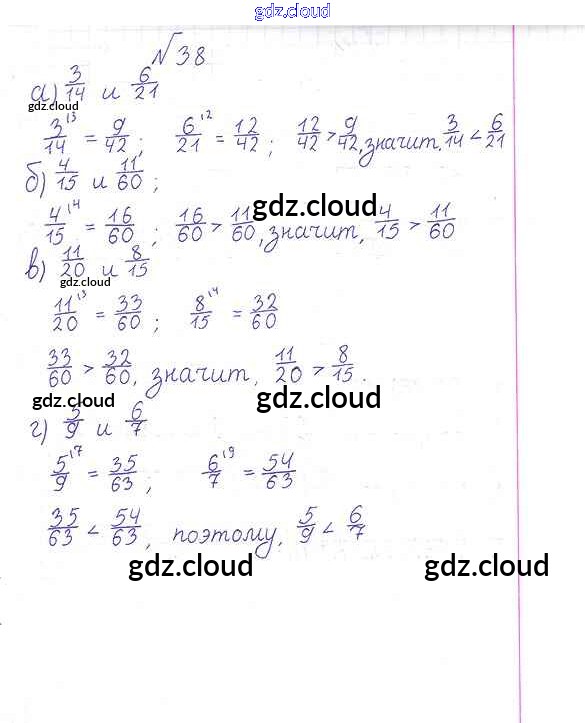 gdz.cloud
√38
а) 3/14 и 6/21
gdz.cloud
3/14 ^13 = 9/42; 6/21 ^12 = 12/42; 12/42 > 9/42, значит, 3/14 < 6/21
б) 4/15 и 11/60;
4/15 ^14 = 16/60; 16/60 > 11/60, значит, 4/15 > 11/60
gdz.cloud
в) 11/20 и 8/15
gdz.cloud
11/20 ^13 = 33/60; 8/15 ^14 = 32/60
33/60 > 32/60, значит, 11/20 > 8/15.
gdz.cloud gdz.cloud
г) 5/9 и 6/7
5/9 ^17 = 35/63; 6/7 ^19 = 54/63
35/63 < 54/63, поэтому, 5/9 < 6/7
gdz.cloud gdz.cloud